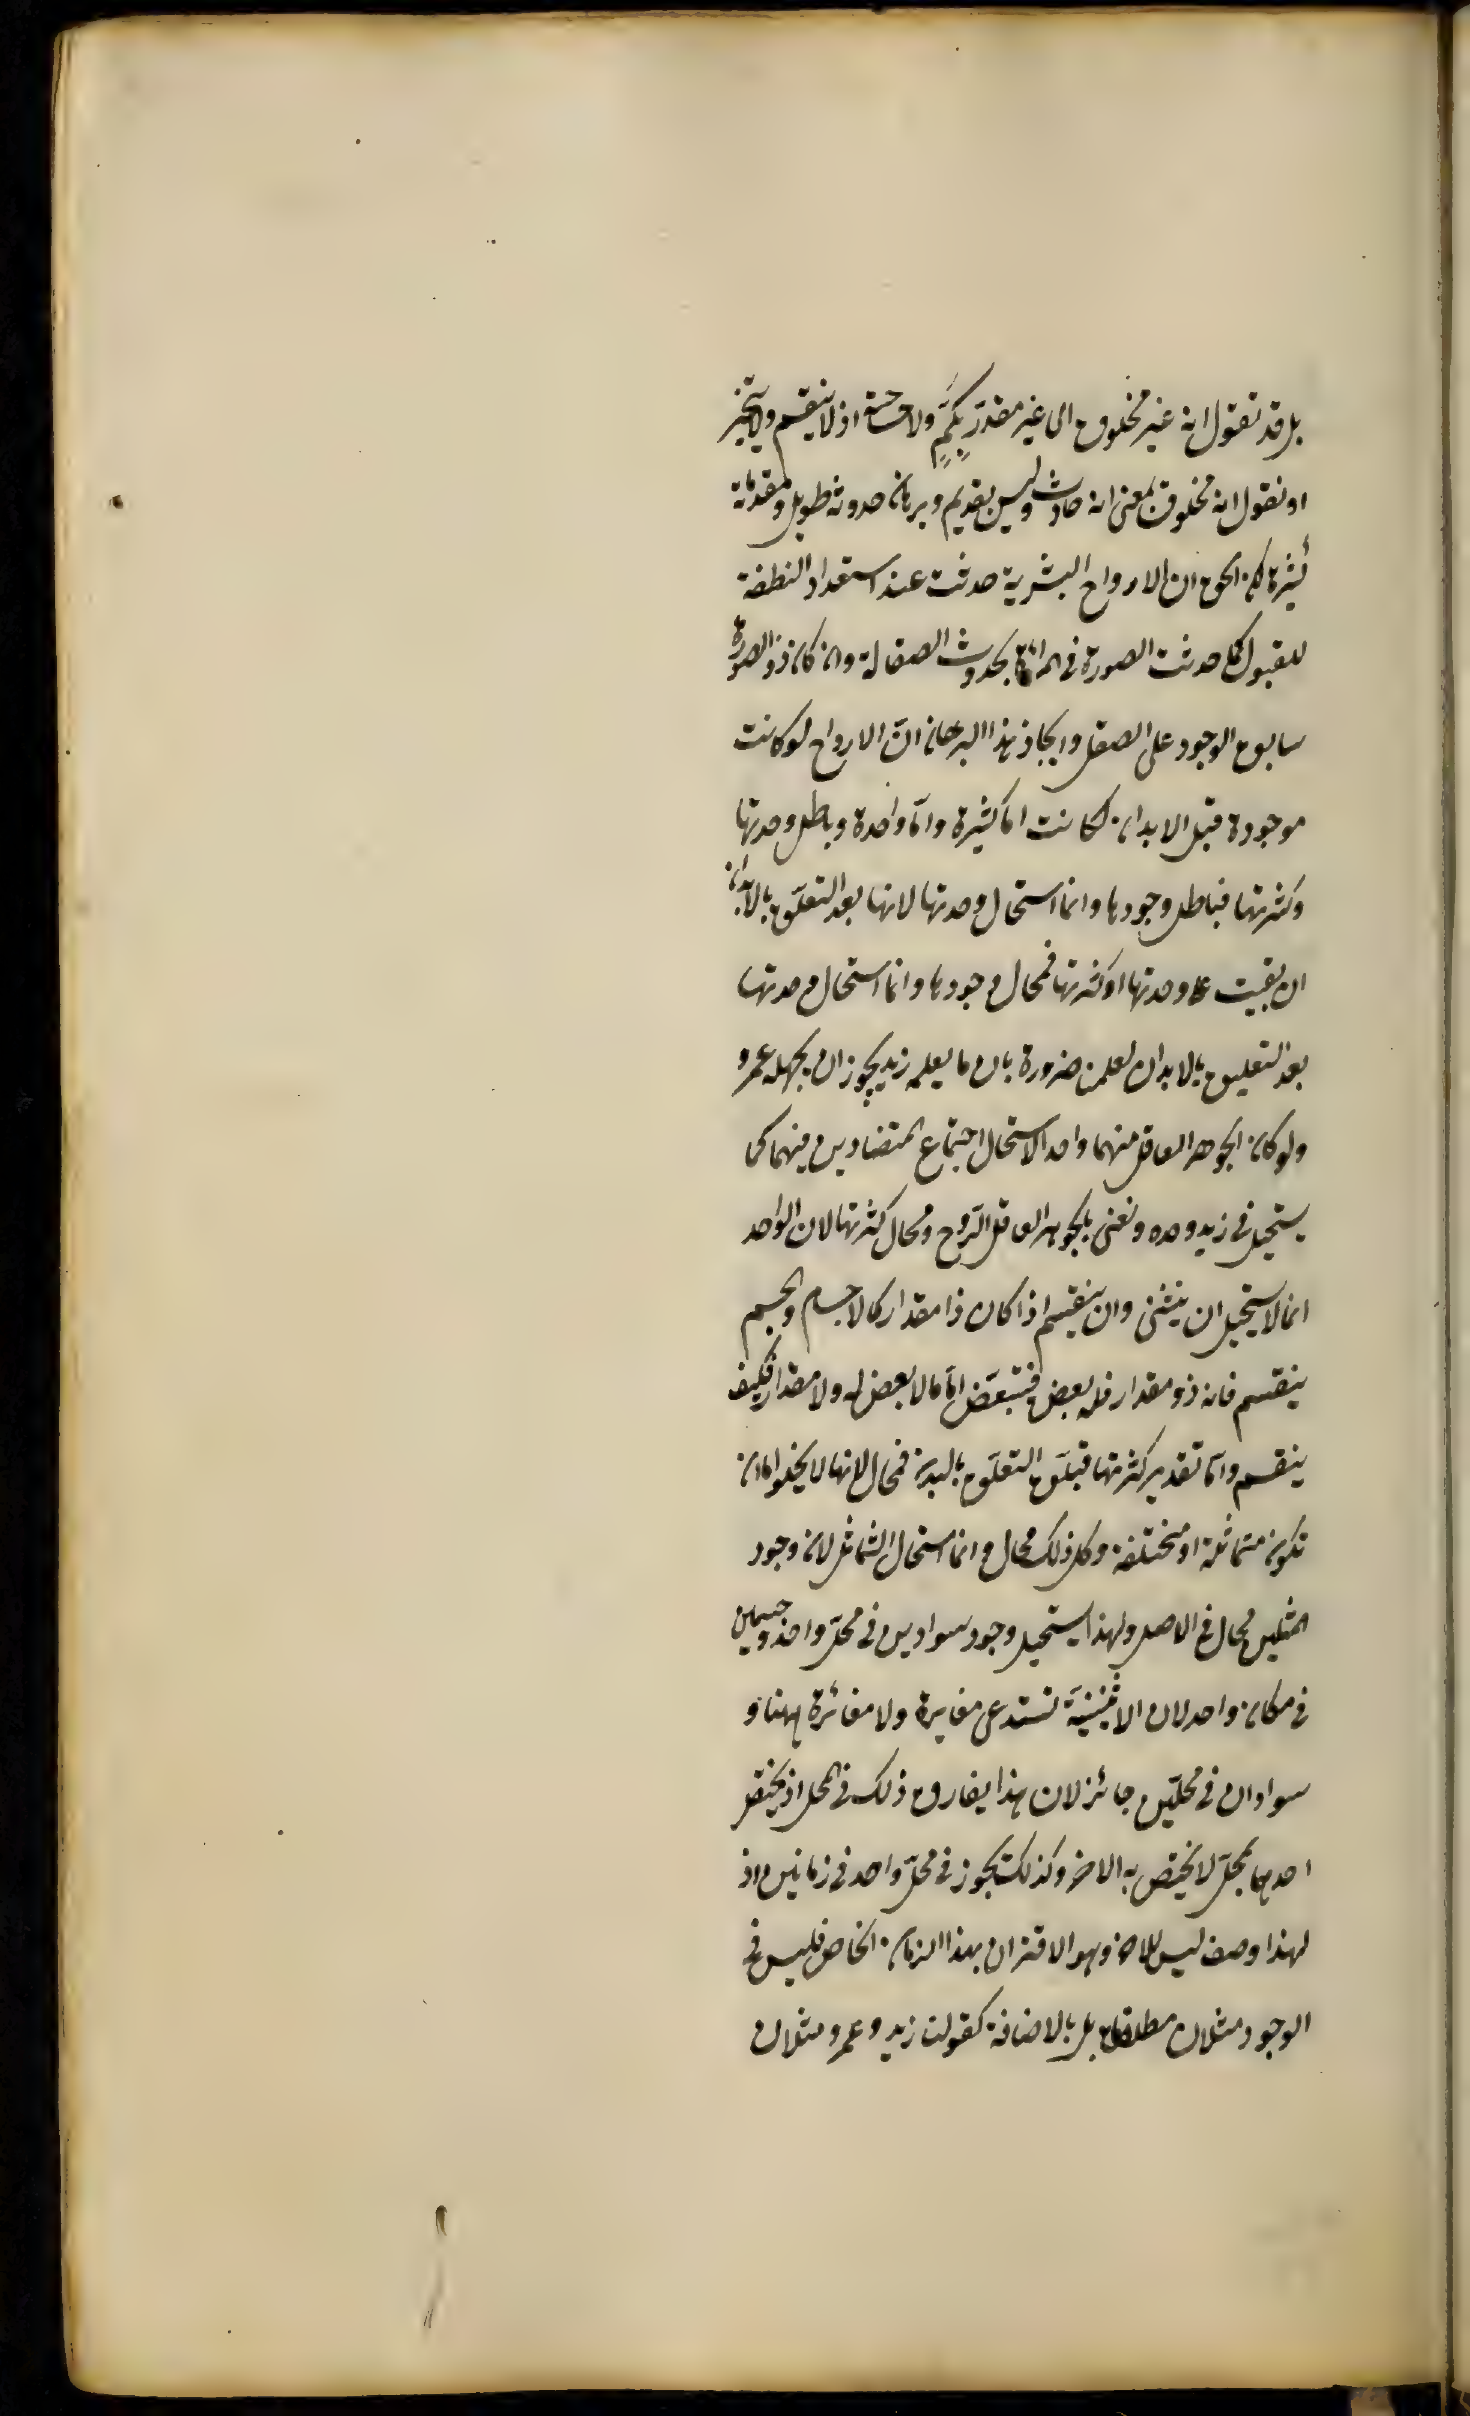 بل قد نقول انه غير مخلوق اى غير مقدر بكم ولا مساحة اذ لا ينقسم ولا يتحيز
او نقول انه مخلوق بمعنى انه حادث وليس بقديم وبرهان حدوثه طويل ومقدماته
كثيرة لكن الحق ان الارواح البشرية حدثت عند استعداد النطفة
للقبول كما حدثت الصورة فى المرآة بحدوث الصقالة وان كان ذو الصورة
سابق الوجود على الصقل وايجاز هذا البرهان انّ الارواح لو كانت
موجودة قبل الابدان لكانت امّا كثيرة وامّا واحدة وباطل وحدتها
وكثرتها فباطل وجودها وانما استحال وحدتها لانها بعد التعلّق بالابدان
ان بقيت على وحدتها او كثرتها فمحال وجودها وانما استحال وحدتها
بعد التعليق بالابدان لعلمنا ضرورة بان ما يعلمه زيد يجوز ان يجهله عمرو
ولو كان الجوهر العاقل منهما واحد الاستحال اجتماع المتضادين فيهما كما
يستحيل فى زيد وحده ونعنى بالجوهر العاقل الرّوح ومحال كثرتها لان الواحد
انما لا يستحيل ان يتثنى وان ينقسم اذا كان ذا مقدار كالاجسام والجسم
ينقسم فانه ذو مقدار فله بعض فيتبعّض امّا ما لا بعض له ولا مقدار فكيف
ينقسم وامّا تقدير كثرتها قبل التعلّق بالبدن فمحال لانها لا يخلوا اما ان
تكون متماثلة او مختلفة وكل ذلك محال وانما استحال التماثل لان وجود
المثلين محال فى الاصل ولهذا يستحيل وجود سوادين فى محلّ واحد وجسمين
فى مكان واحد لان الاثنينيّة تستدعى مغايرة ولا مغائرة ههنا و
سوادان فى محلّين جائز لان هذا يفارق ذلك فى المحل اذ يختص
احدهما بمحلّ لا يختص به الاخر وكذلك يجوز فى محلّ واحد فى زمانين اذ
لهذا وصف ليس للاخر وهو الاقتران بهذا الزمان الخاص فليس فى
الوجود مثلان مطلقا بل بالاضافة كقولنا زيد وعمرو مثلان